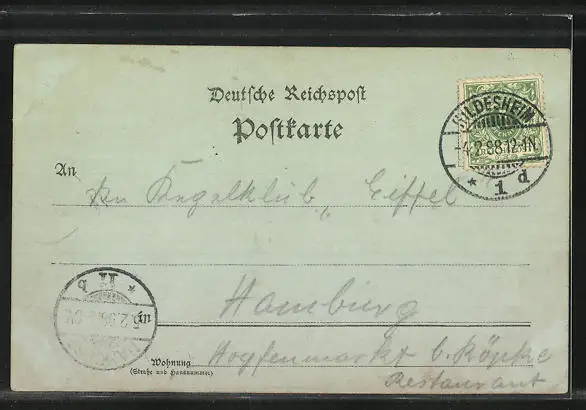 Deutsche Reichspost
Postkarte
HILDESHEIM
4.2.98.12-1N
* 1 d
An den Kegelklub „Eiffel
Hamburg
* 11 b
Wohnung
(Straße und Hausnummer)
Hopfenmarkt b. Köpcke
Restaurant